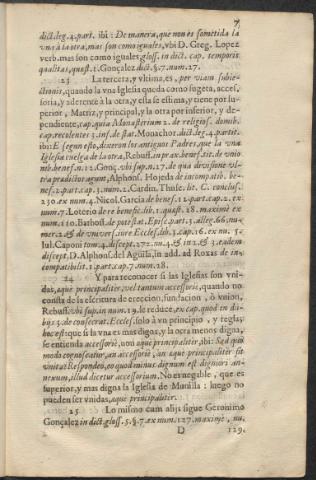 7
dict. leg. 4. part. ibi: De manera, que non es sometida la
vna à la otra, mas son como iguales, vbi D. Greg. Lopez
verb. mas son como iguales, gloss. in dict. cap. temporis
qualitas, quæst. 1. Gonçalez dict. §. 7. num. 27.
23 La tercera, y vltima, es, per viam subie-
ctionis, quando la vna Iglesia queda como sugeta, acces-
soria, y aderente à la otra, y esta se estima, y tiene por su-
perior, Matriz, y principal, y la otra por inferior, y de-
pendiente, cap. quia Monasterium 2. de religios. domib.
cap. recolentes 3. ins. de stat. Monachor. dict. leg. 4. partit.
ibi: E segun esto, dixeron los antiguos Padres, que la vna
Iglesia suelga de la otra, Rebuff. in prax. benef. tit. de vnio
nib. benef. n. 12. Gonç. vbi sup. n. 27. de qua diuisione vl-
tra prædictos agunt, Alphons. Hojeda de incompatib. be-
nef. 2. part. cap. 3. num. 2. Cardin. Thusc. lit. C. conclus.
230 ex num. 4. Nicol. Garcia de benef. 12. part. cap. 2. ex
num. 7. Loterio de re benefic. lib. 1. quæst. 28. maximè ex
num. 110. Barbos. de potestat. Episc. part. 3. alleg. 66. nu-
mer. 2. & de vniuers. iure Eccles. lib. 3. cap. 16. ex nu. 5.
Iul. Caponi tom. 4. discept. 272. nu. 4. & in 2. & 3. eadem
discept. D. Alphons. del Aguila, in add. ad Roxas de in-
compatibilit. 1. part. cap. 7. num. 28.
24 Y para reconocer si las Iglesias son vni-
das, æque principaliter, vel tantum accessoriè, quando no
consta de la escritura de ereccion, fundacion, ò vnion,
Rebuff. vbi sup. in num. 19. lo reduce, ex cap. quod in du-
bijs 3. de consecrat. Eccles. solo à vn principio, y regla;
hoc est: que si la vna es mas digna, y la otra menos digna,
se entienda accessoriè, non æque principaliter, ibi: Sed quo
modo cognoscatur, an accessoriè, an æque principaliter sit
vnita: Respondeo, eo quod minus dignum est digniori an-
nexum, illud dicetur accessorium. No es negable, que es
superior, y mas digna la Iglesia de Munilla: luego no
pueden ser vnidas, æque principaliter.
25 Lo mismo cum alijs sigue Geronimo
Gonçalez in dict. gloss. 5. §. 7. ex num. 127. maximè, nu.
D 129.